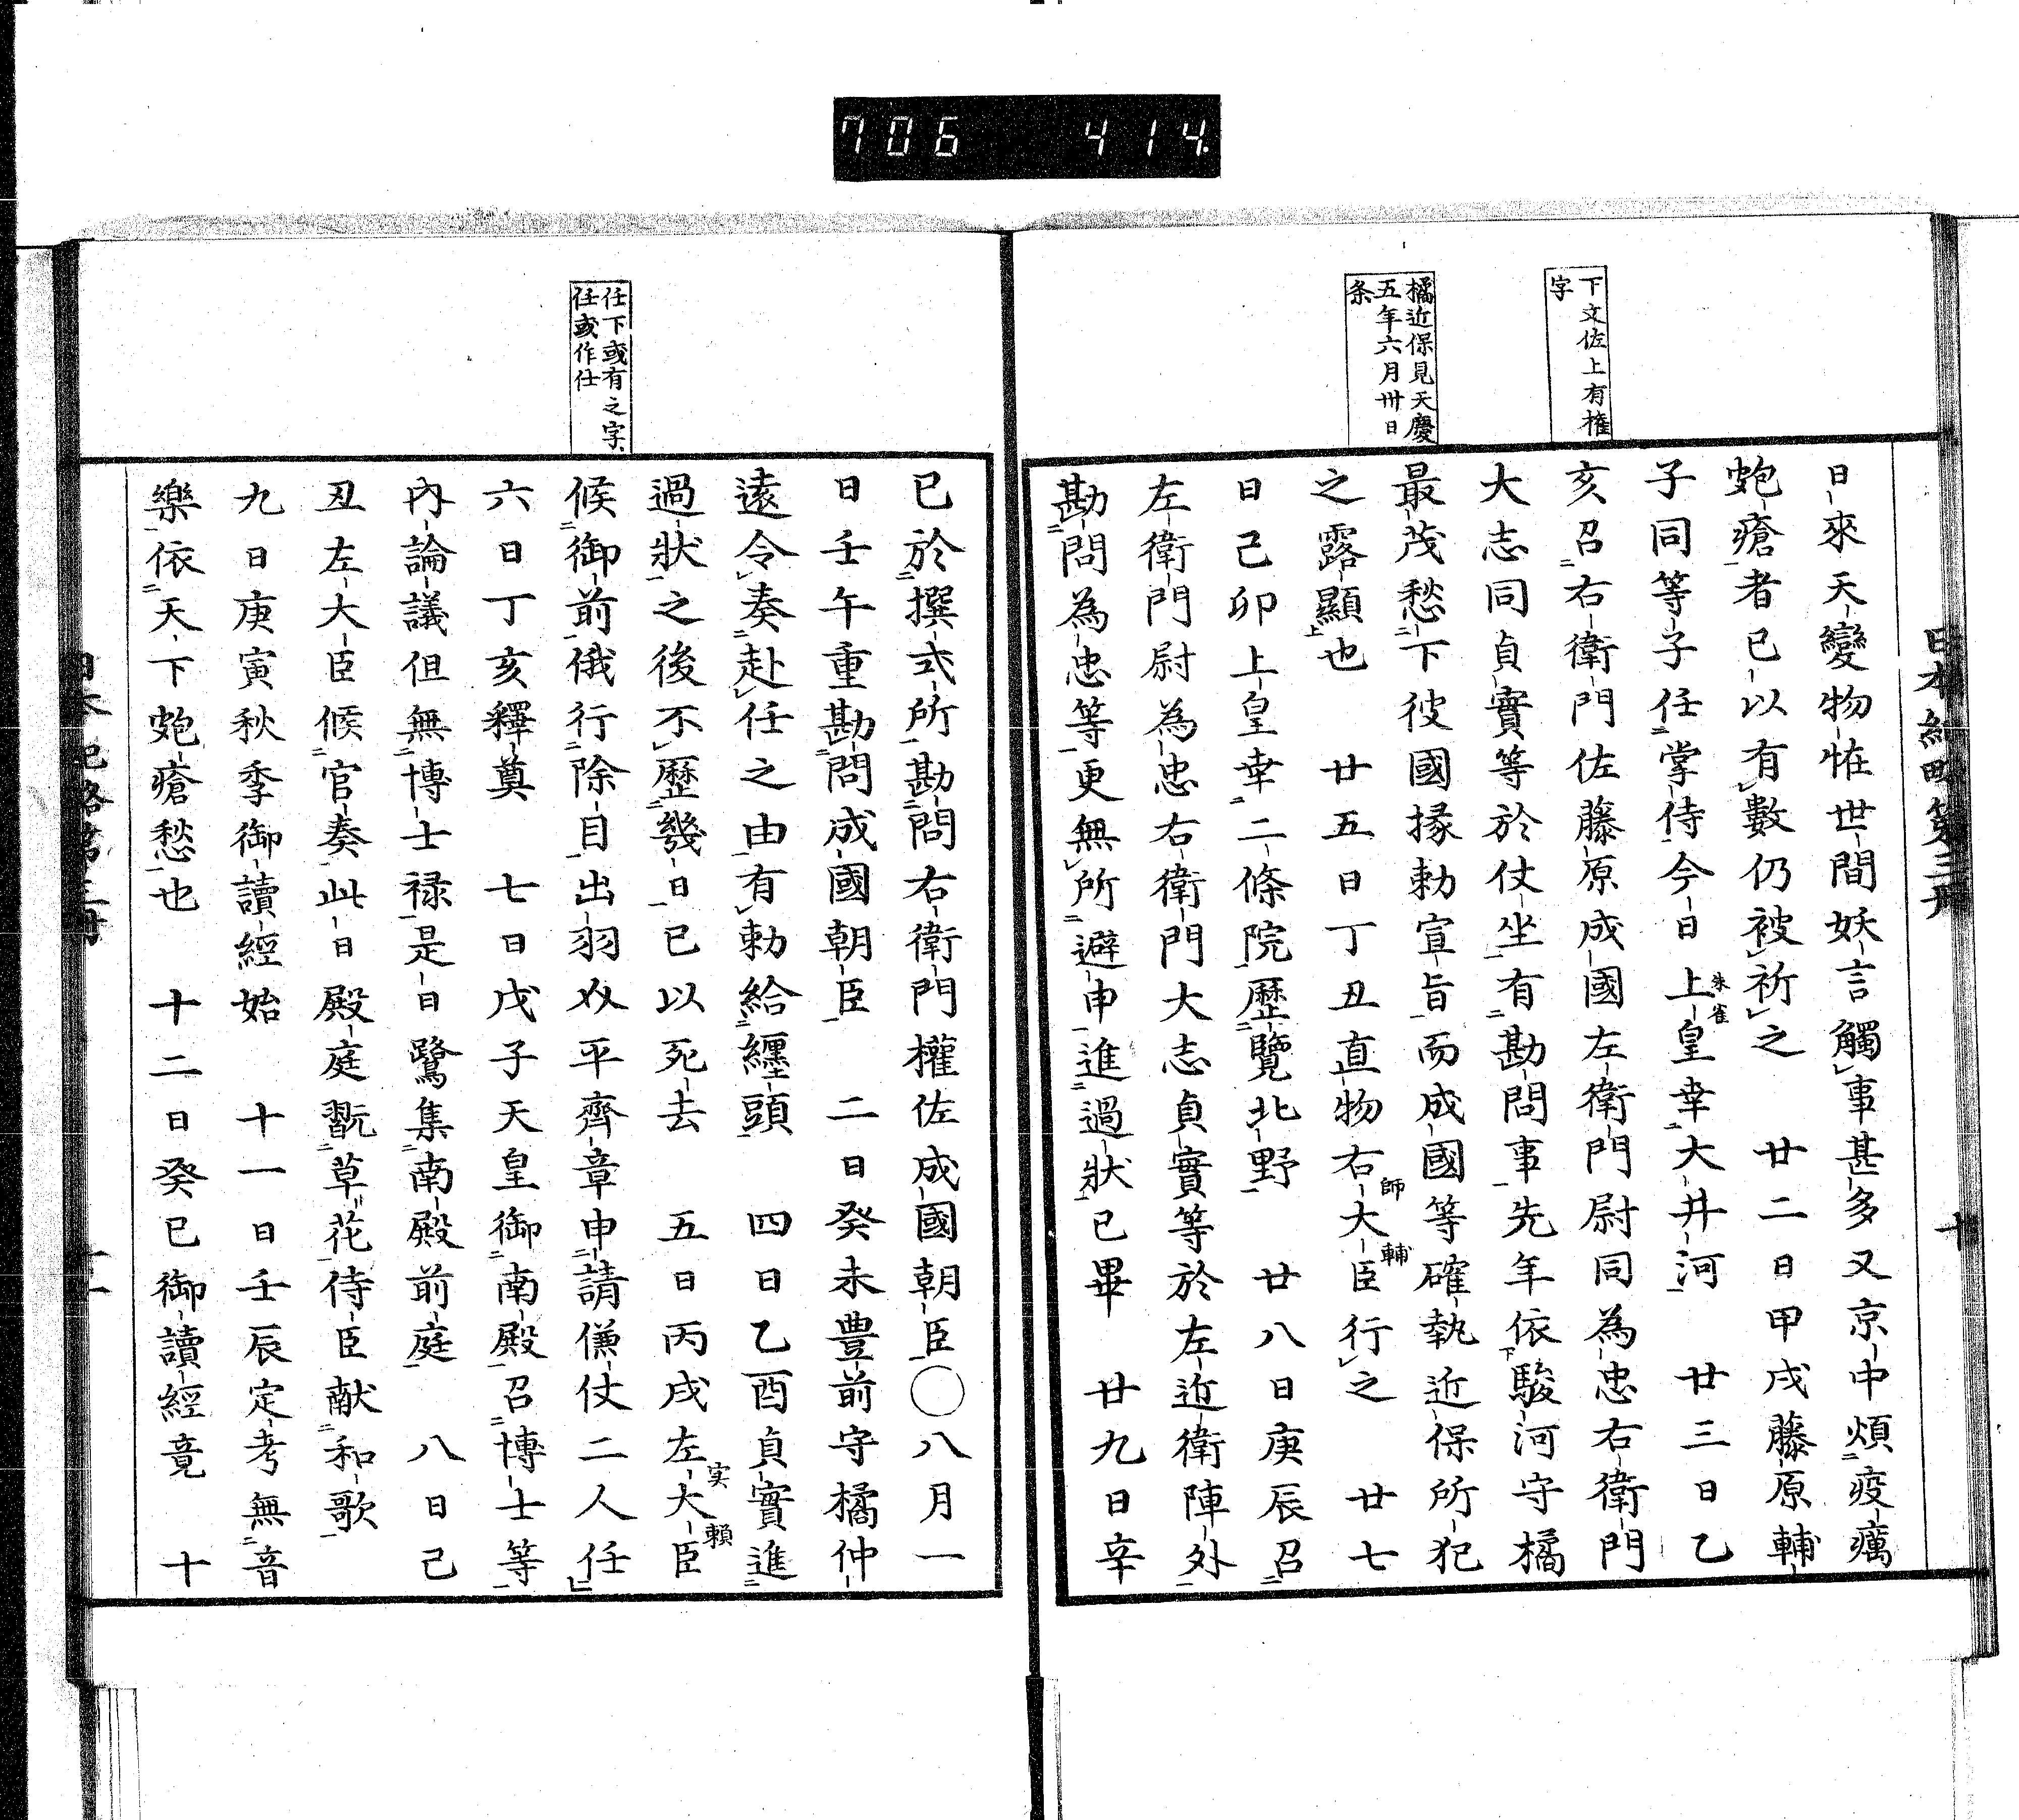 706 414.
日本紀略第三冊
十
下文佐上有権
字
橘近保見天慶
五年六月卅日
条
日來天變物恠世間妖言觸事甚多又京中煩疫癘
皰瘡者已以有數仍被祈之 廿二日甲戌藤原輔
子同等子任掌侍今日上皇幸大井河 廿三日乙
朱雀
亥召右衛門佐藤原成國左衛門尉同為忠右衛門
大志同貞實等於仗坐有勘問事先年依駿河守橘
最茂愁下彼國掾勅宣旨而成國等確執近保所犯
之露顯也 廿五日丁丑直物右大臣行之 廿七
師輔
日己卯上皇幸二條院歷覽北野 廿八日庚辰召
左衛門尉為忠右衛門大志貞實等於左近衛陣外
勘問為忠等更無所避申進過狀已畢 廿九日辛
任下或有之字
任或作仕
巳於撰式所勘問右衛門權佐成國朝臣○八月一
日壬午重勘問成國朝臣 二日癸未豊前守橘仲
遠令奏赴任之由有勅給纒頭 四日乙酉貞實進
過狀之後不歷幾日已以死去 五日丙戌左大臣
実頼
候御前俄行除目出羽守平齊章申請傔仗二人任
六日丁亥釋奠 七日戊子天皇御南殿召博士等
內論議但無博士祿是日鷺集南殿前庭 八日己
丑左大臣候官奏此日殿庭翫草花侍臣献和歌
九日庚寅秋季御讀經始 十一日壬辰定考無音
樂依天下皰瘡愁也 十二日癸巳御讀經竟 十
日本紀略第三冊
十一